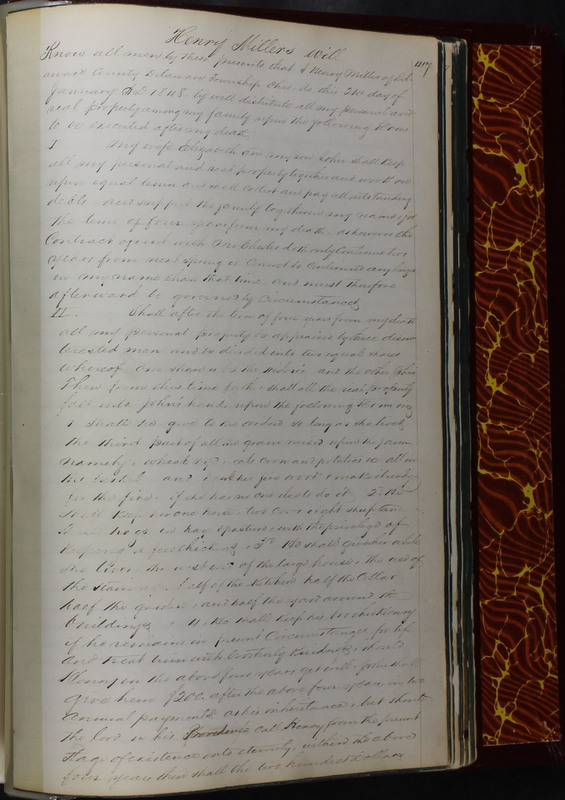 Henry Millers Will
117
Know all men by these presents that I Henry Miller of Del
aware County Delaware Township Ohio do this 21st day of
January A.D. 1848, by will distribute all my personal and
real property among my family upon the following terms
to be executed after my death
I My wife Elizabeth and my son John shall keep
all my personal and real property together and work on
upon equal terms and will collect and pay all outstanding
debts, and support the family together in my name for
the time of four years from my death, as however the
contract agreed with Mr Chester doth only continue two
years from next spring or cannot be continued any longer
in my name than that time and must therefore
afterward be governed by circumstances,
II. Shall after the time of four years from my death
all my personal property be appraised by three disin
terested men and be divided into two equal shares
whereof one share is to be the widow's and the other John's
Then from this time forth, shall all the real property
fall into John's hand upon the following terms
1 shall he give to the widow so long as she lives
the third part of all the grain raised upon the farm
namely, wheat, rye, oats corn and potatoes
the and wood make it ready
for the fire, if she has no one else to do it, 2d He
shall keep her one horse, two cows eight sheep ten
hogs on hay & pasture, with the privilege of
keeping a few chickens, 3d He shall give her while
she lives, the west end of the large house, the use of
the stairway, half of the kitchen half the cellar
half the garden, and half the yard around the
buildings, 4. He shall keep his brother Henry
if he remains in present circumstances, for life
and treat him with brotherly kindness, should
Henry in the above four years get well, John shall
give him $200. after the above four years, in two
annual payments as his inheritance, but should
the Lord in his call Henry from the present
stage of existence into eternity, within the above
four years then shall the two hundred dollars